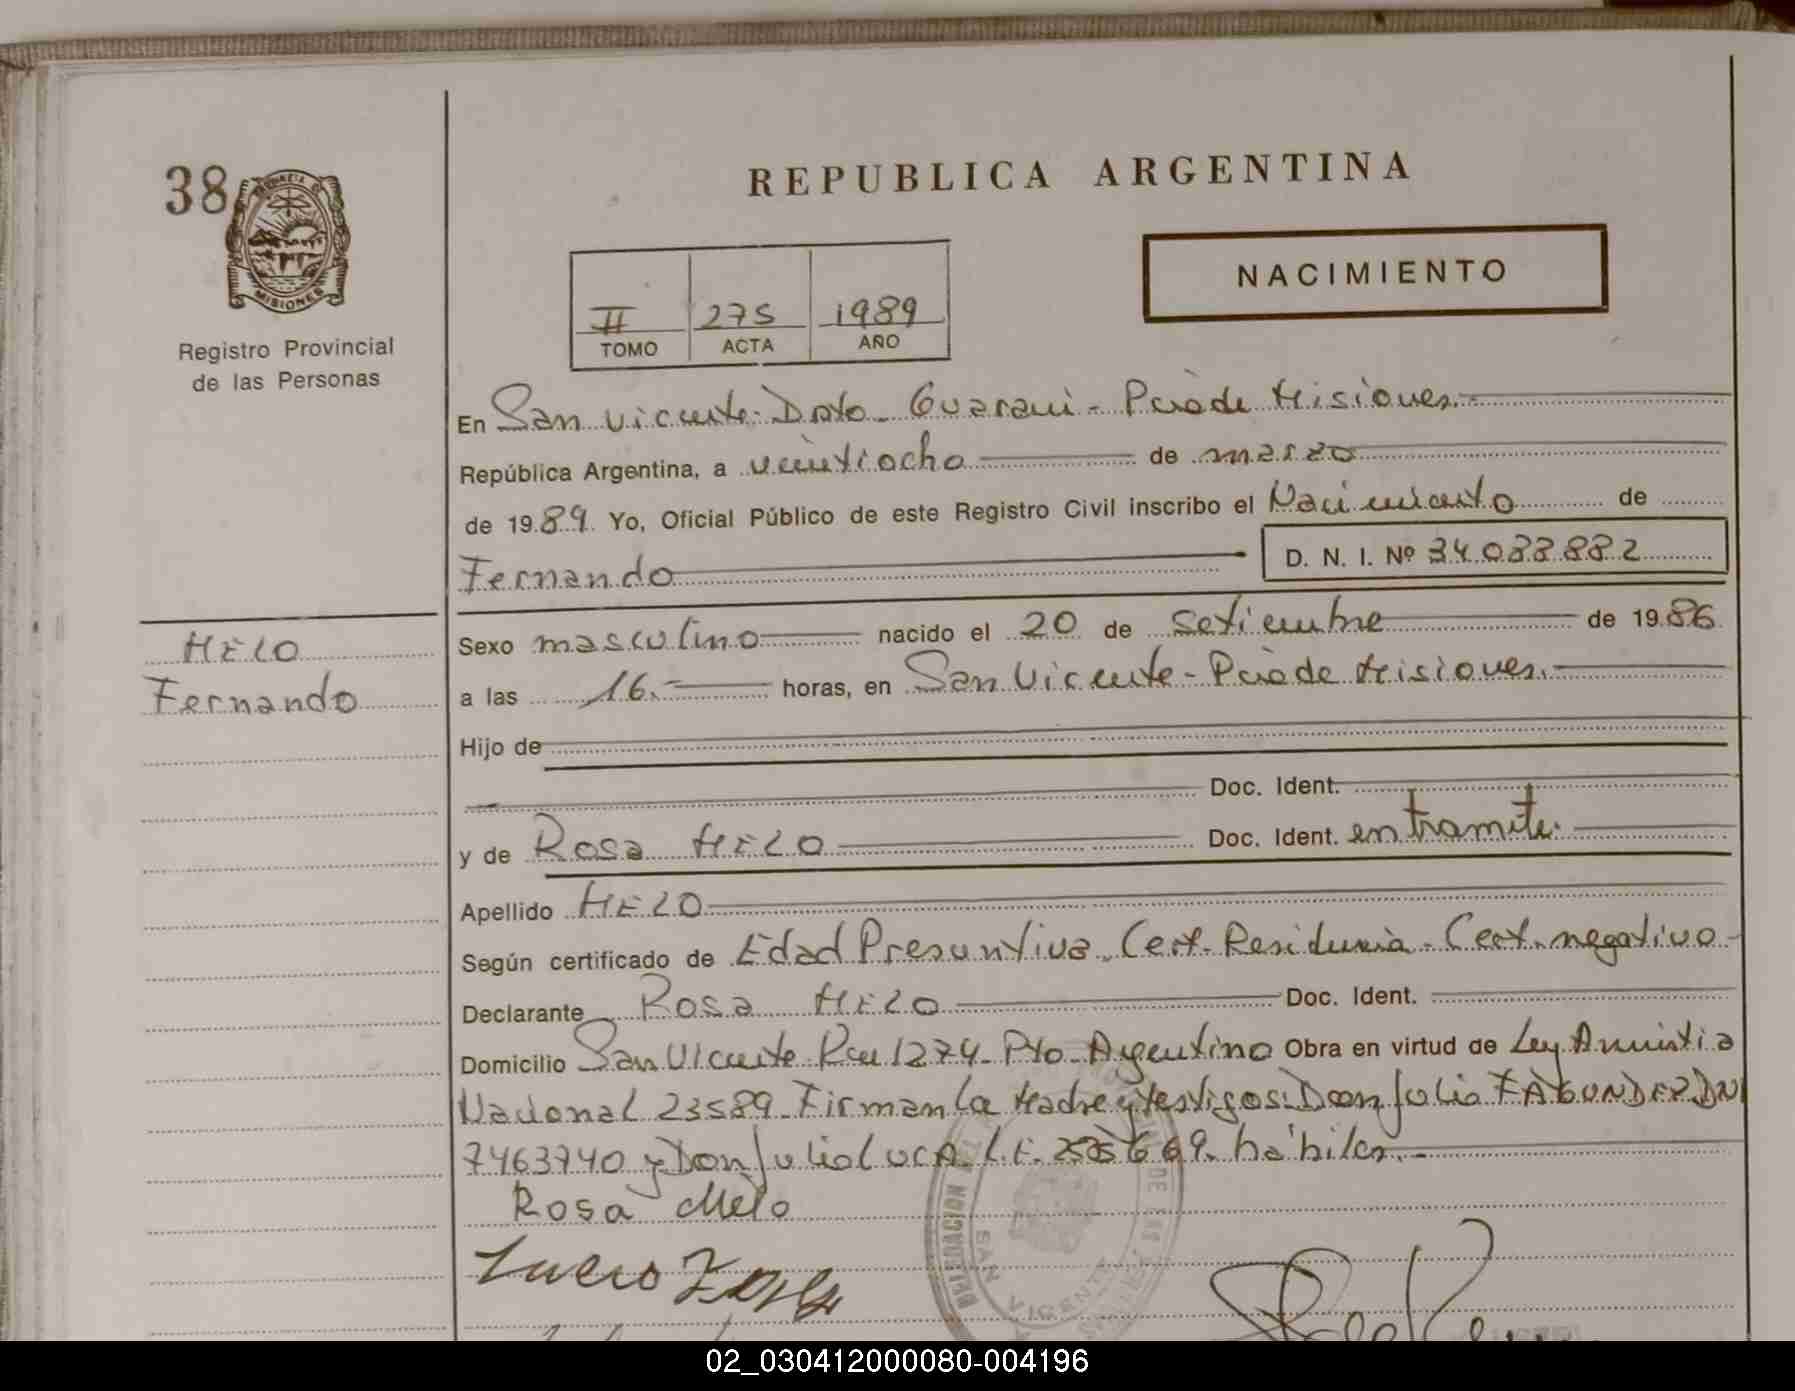 38
REPUBLICA ARGENTINA
PROVINCIA D
MISIONES
NACIMIENTO
II 275 1989
TOMO ACTA AÑO
Registro Provincial
de las Personas
En San Vicente - Dpto - Guarani - Pcia de Misiones.
República Argentina, a veintiocho de marzo
de 1989. Yo, Oficial Público de este Registro Civil inscribo el Nacimiento de
Fernando D. N. I. Nº 34.088.882
MELO
Fernando
Sexo masculino nacido el 20 de Setiembre de 1986
a las 16.- horas, en San Vicente - Pcia de Misiones.
Hijo de
Doc. Ident.
y de Rosa MELO Doc. Ident. en tramite.
Apellido MELO
Según certificado de Edad Presuntiva. Cert. Residencia. Cert. negativo
Declarante Rosa MELO Doc. Ident.
Domicilio San Vicente Km 1274 - Pto - Argentino Obra en virtud de Ley Amnistia
Nacional 23589. Firman la Madre y testigos: Don Julio FAGUNDEZ DNI
7463740 y Don Julio LUCA. L.E. hábiles.
Rosa Melo
Lucio
DELEGACION
SAN VICENTE
02_030412000080-004196